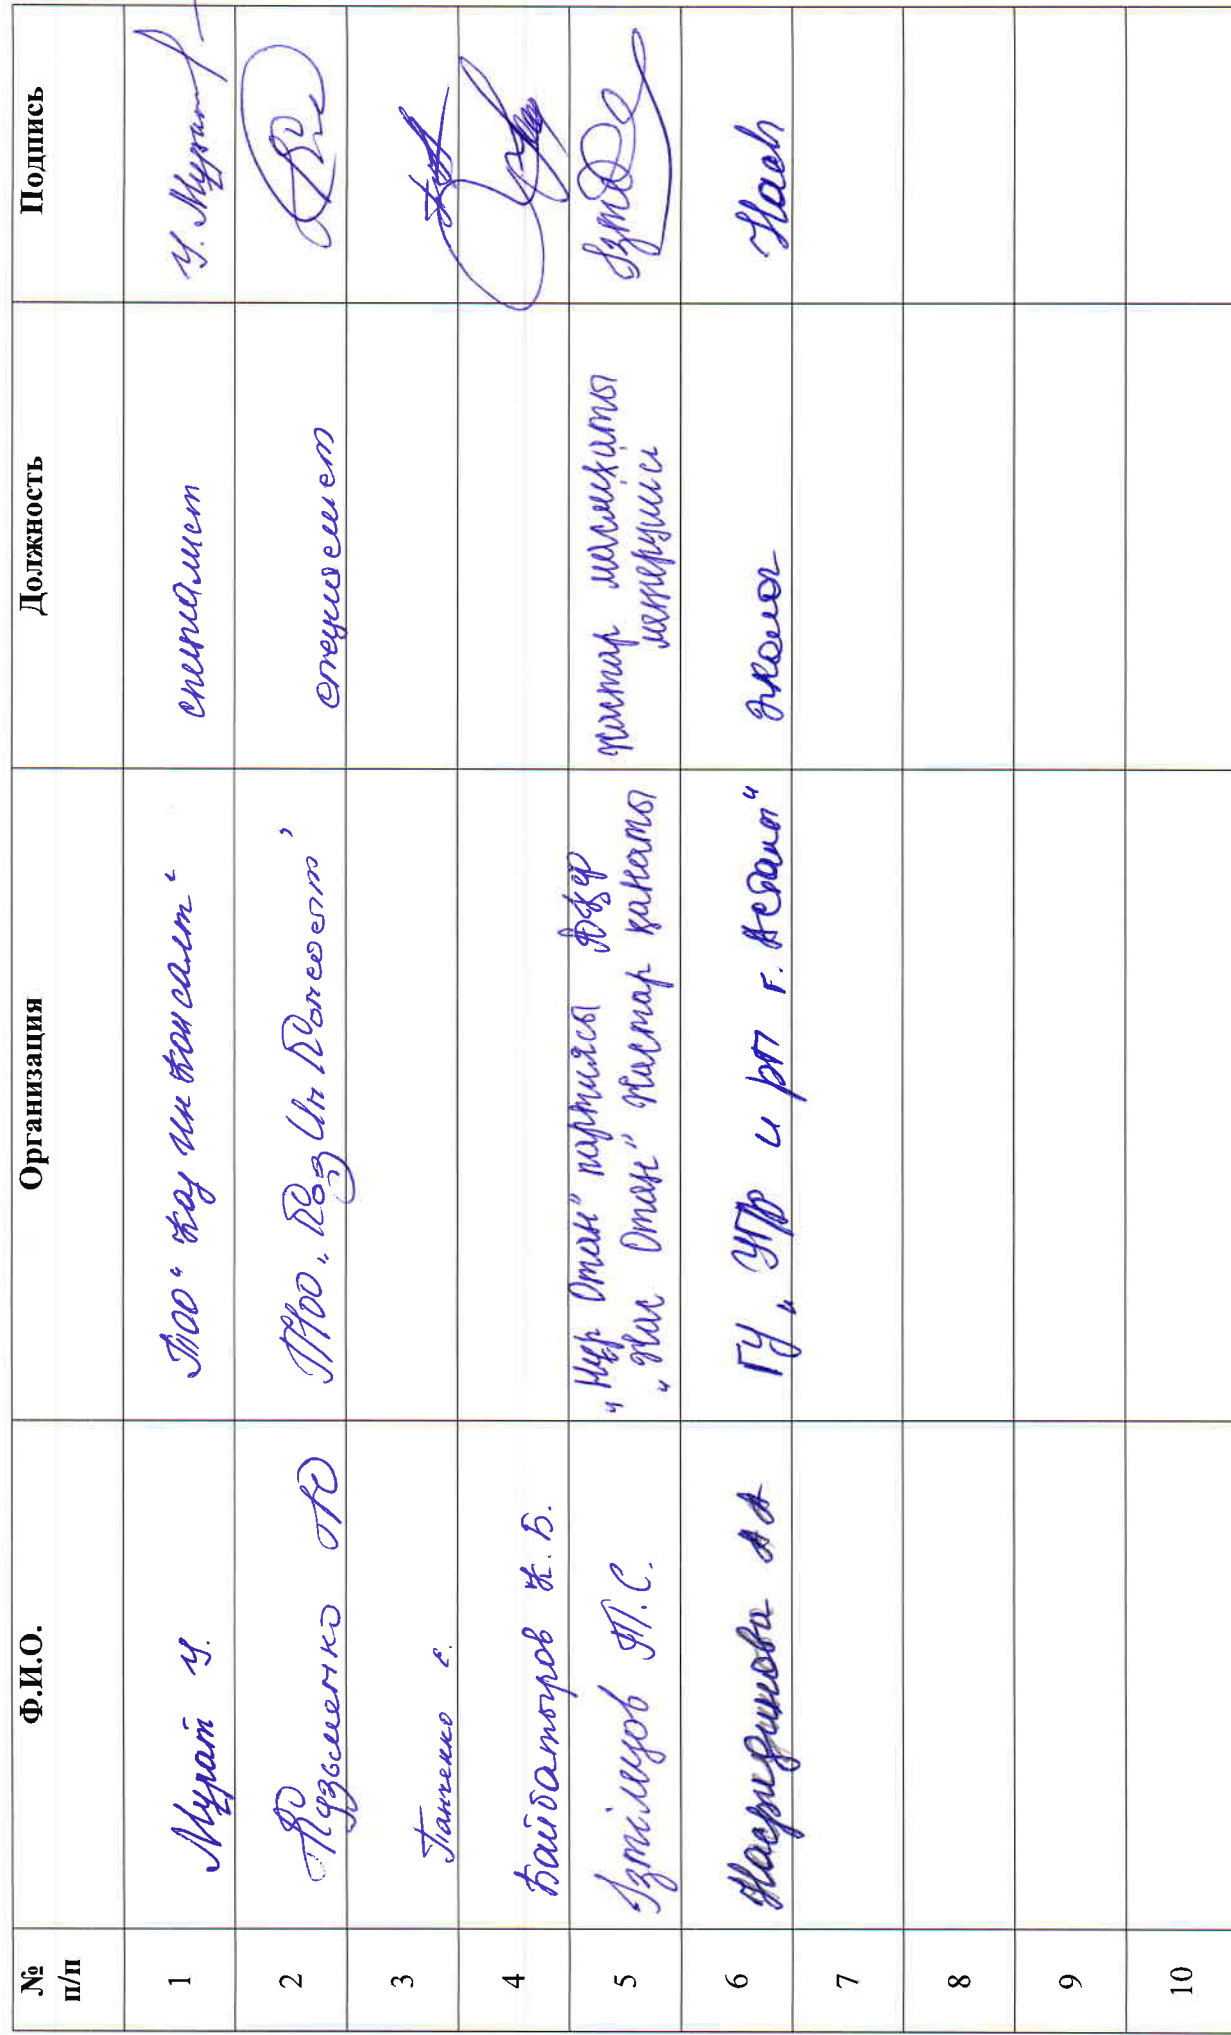 № п/п Ф.И.О. Организация Должность Подпись
1 Мұрат У. ТОО "Каз Ин Консалт" специалист У. Мұрат
2 Кузьменко Ю ТОО "КазИнКонсалт" специалист
3 Панченко Е.
4 Байбатыров К. Б.
5 Ізтілеуов Т.С. "Нұр Отан" партиясы жастар мәслихаты
"Жас Отан" Жастар қанаты меңгерушісі
6 Насридинова А А ГУ "УПР и РП г. Астаны" эколог
7
8
9
10